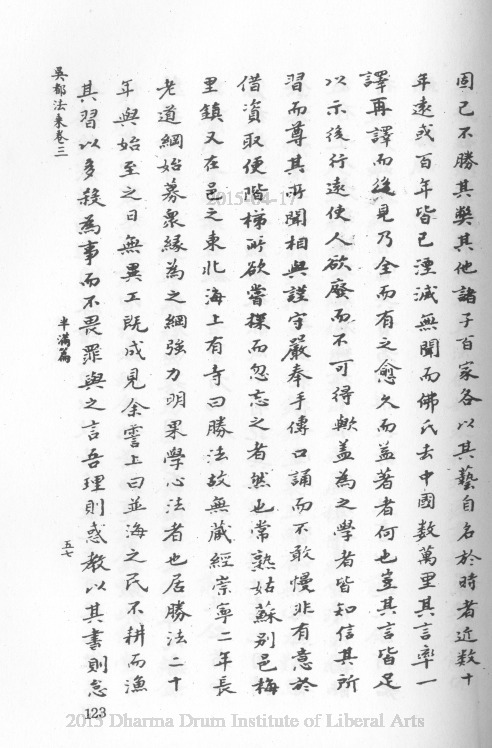 固已不勝其獘其他諸子百家各以其藝自名於時者近数十
年遠或百年皆已湮滅無聞而佛氏去中國数萬里其言率一
譯再譯而後見乃全而有之愈久而益著者何也豈其言皆足
以示後行遠使人欲廢而不可得歟盖為之學者皆知信其所
習而尊其所聞相與謹守嚴奉手傳口誦而不敢慢非有意於
借資取便階梯所欲嘗探而忽忘之者然也常熟姑蘇别邑梅
里鎮又在邑之東北海上有寺曰勝法故無藏經崇寧二年長
老道綱始募衆縁為之綱強力明果學心法者也居勝法二十
年與始至之日無異工既成見余霅上曰並海之民不耕而漁
其習以多殺為事而不畏罪與之言吾理則惑教以其書則怠
吳都法乘卷三
半滿篇
五七
123
2015-04-17
2015 Dharma Drum Institute of Liberal Arts